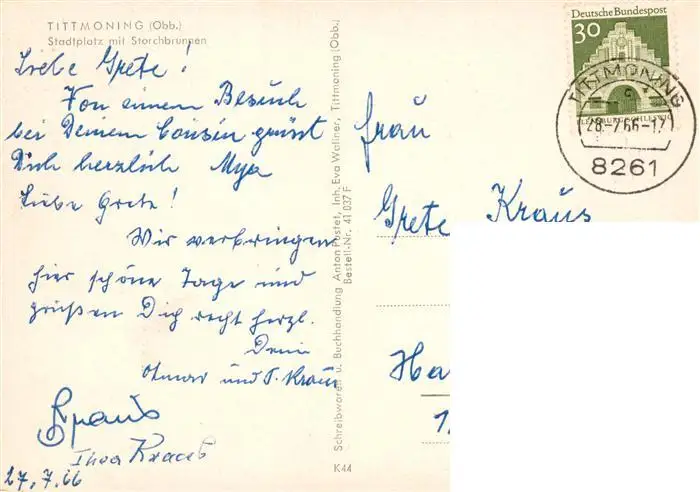 TITTMONING (Obb.)
Stadtplatz mit Storchbrunnen
Liebe Grete!
Von einem Besuch
bei Deinem Cousin grüsst
Dich herzlich Mya
Liebe Grete!
Wir verbringen
hier schöne Tage und
grüßen Dich recht herzl.
Dein
Otmar und T. Kraus
Kraus
Kraus
27.7.66
Schreibwaren u. Buchhandlung Anton Pustet, Inh. Eva Wallner, Tittmoning (Obb.)
Bestell-Nr. 41 037 F
K44
Deutsche Bundespost
30
FLENSBURG/SCHLESWIG
TITTMONING
28.-7.66-17
8261
Frau
Grete Kraus
Ha
1